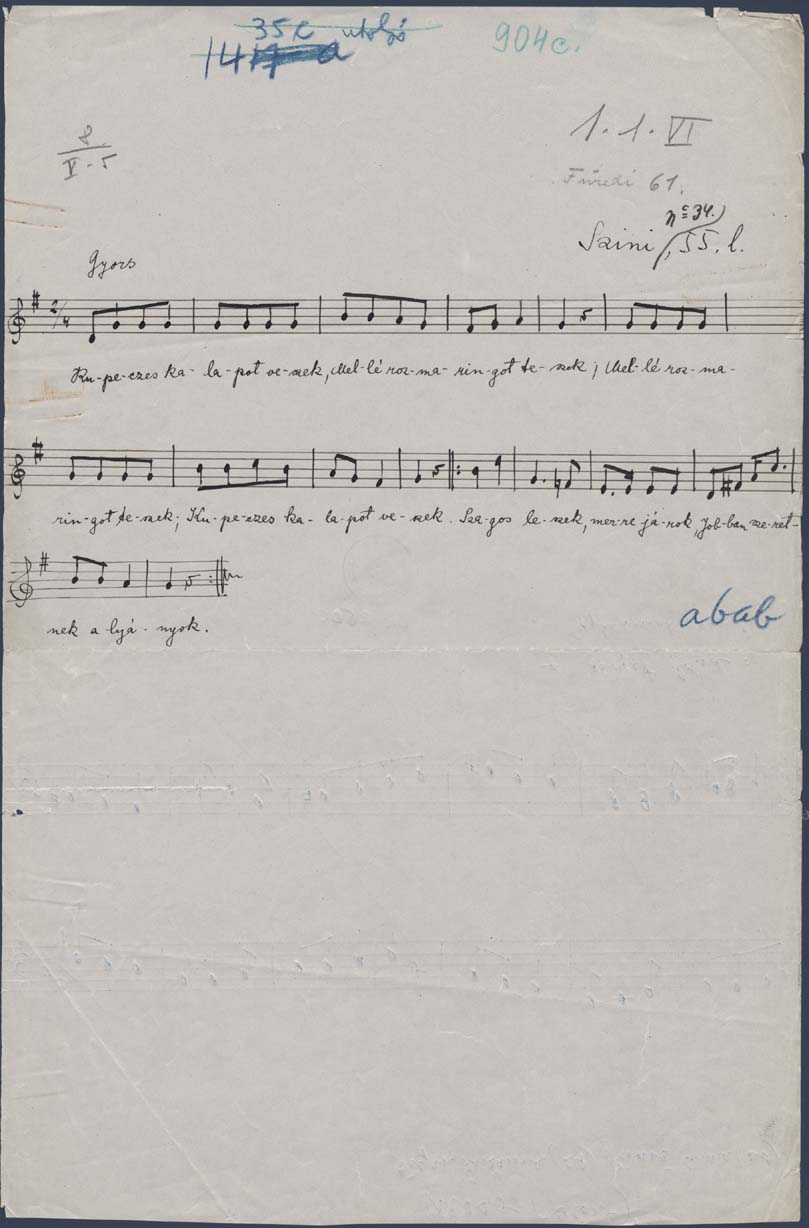 35 c utolsó
904c.
1.1.VI
8
V-5
Füredi 61.
nº 34.
Szini, 55. l.
Gyors
2/4
Ku-pe-czes ka-la-pot ve-szek, Mel-lé roz-ma-rin-got te-szek; Mel-lé roz-ma-
rin-got te-szek; Ku-pe-czes ka-la-pot ve-szek. Sza-gos le-szek, mer-re já-rok, Job-ban sze-ret-
nek a lyá-nyok.
abab